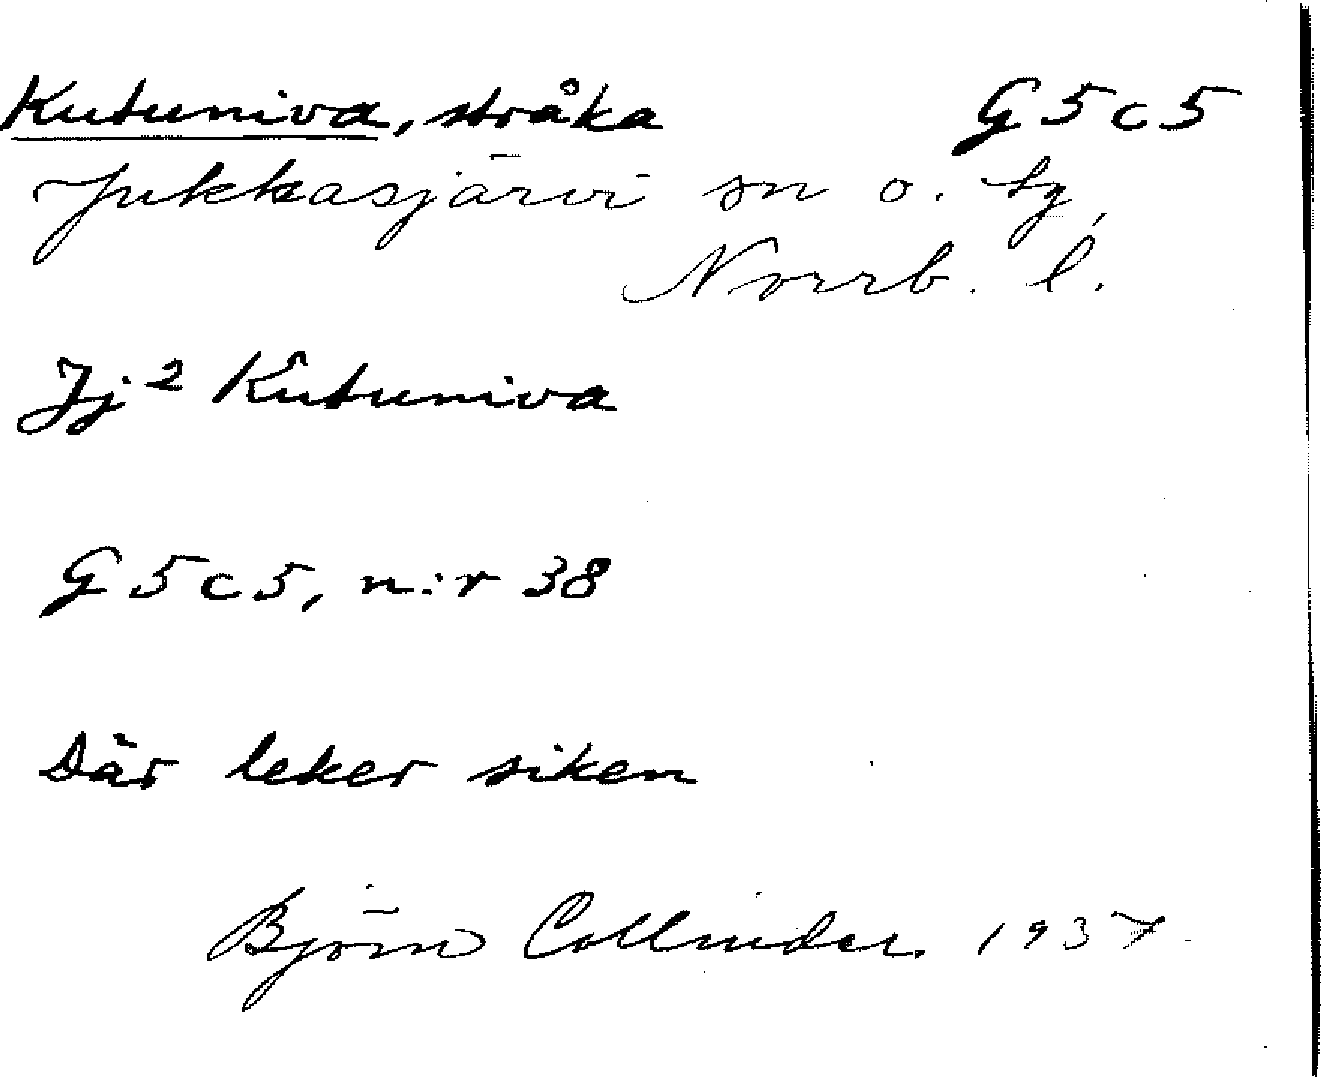 Kutuniva, stråka G 5 c 5
Jukkasjärvi sn o. tg,
Norrb. l.
Jj² Kutuniva
G 5 c 5, n:r 38
Där leker siken
Björn Collinder. 1937